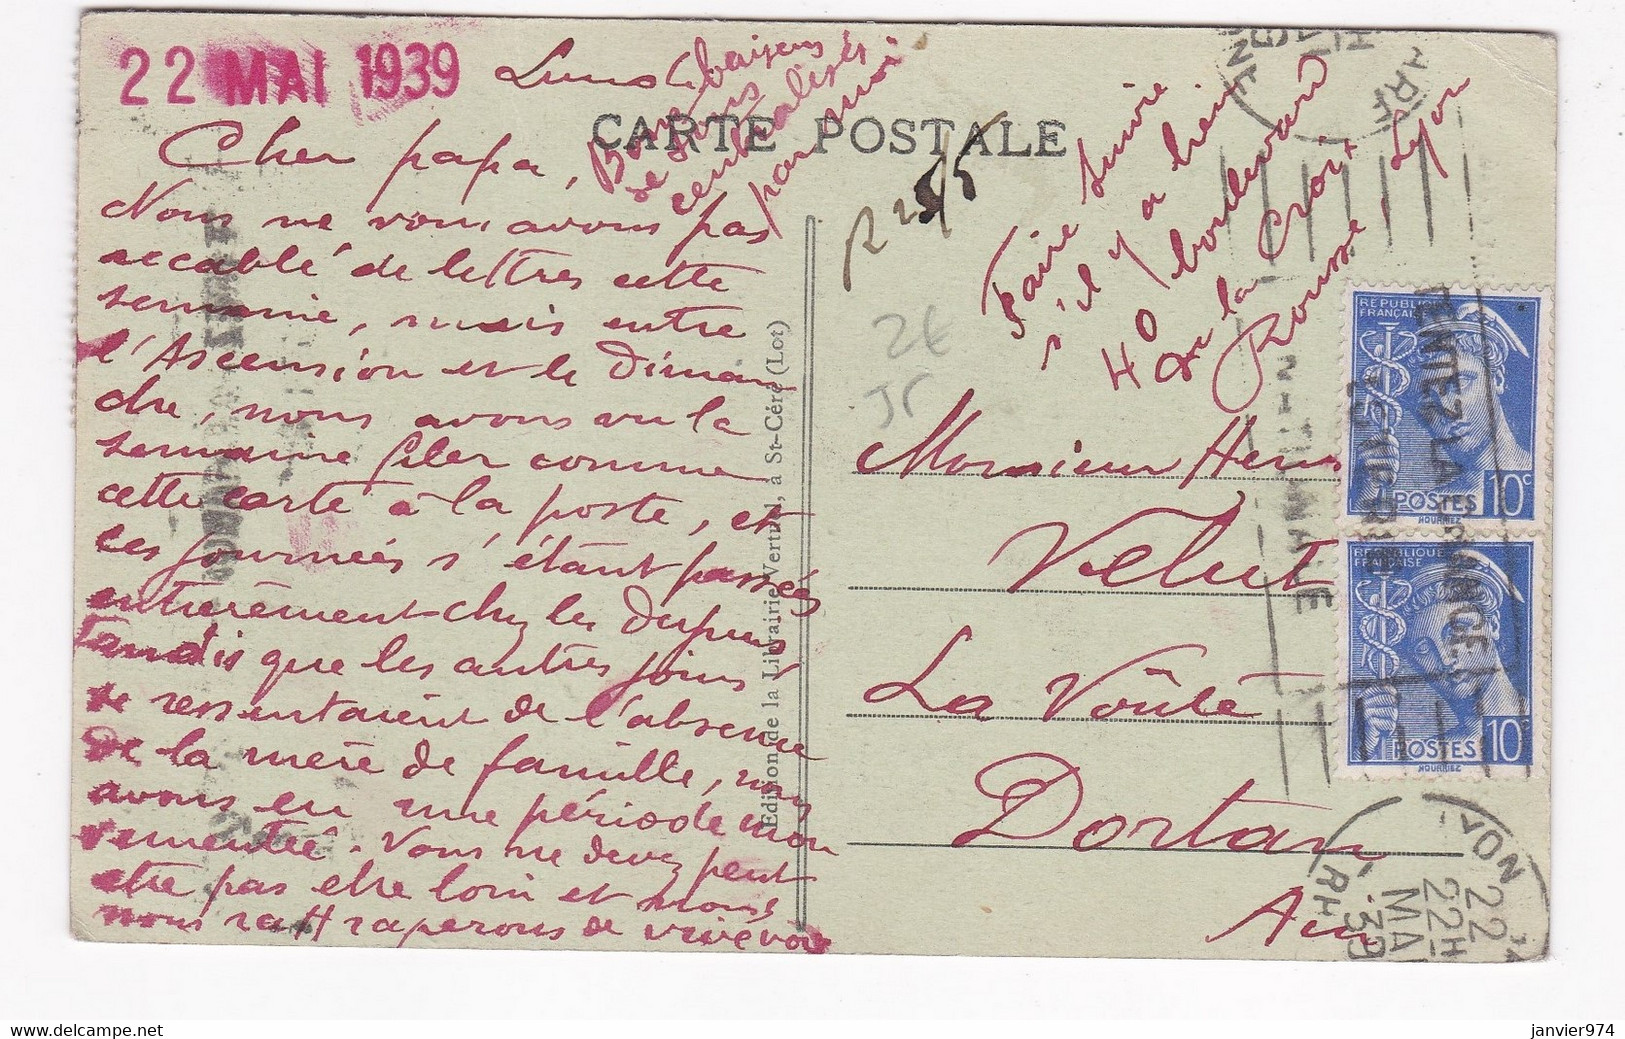 22 MAI 1939
Lundi
CARTE POSTALE
Bons baisers
de
centralisés
par moi
Cher papa,
Nous ne vous avons pas
accablé de lettres cette
semaine, mais entre
l'Ascension et le Diman
che, nous avons vu la
semaine filer comme
cette carte à la poste, et
les journées s'étant passées
entièrement chez les
tandis que les autres jours
se ressentaient de l'absence
de la mère de famille, nous
avons eu une période mou
vementée. Vous ne devez peut
être pas être loin et mais
nous rattraperons de vive voix
Edition de la Librairie Vertuel, à St-Céré (Lot)
R 25/5
2€
JC
Faire suivre
s'il y a lieu
40 boulevard
de la Croix
Rousse, Lyon
Monsieur Henri
Velut
La Voûte
Dortan
Ain
REPUBLIQUE
FRANÇAISE
POSTES 10c
HOURRIEZ
REPUBLIQUE
FRANÇAISE
POSTES 10c
HOURRIEZ
LYON
22H
22
MAI
39
janvier974